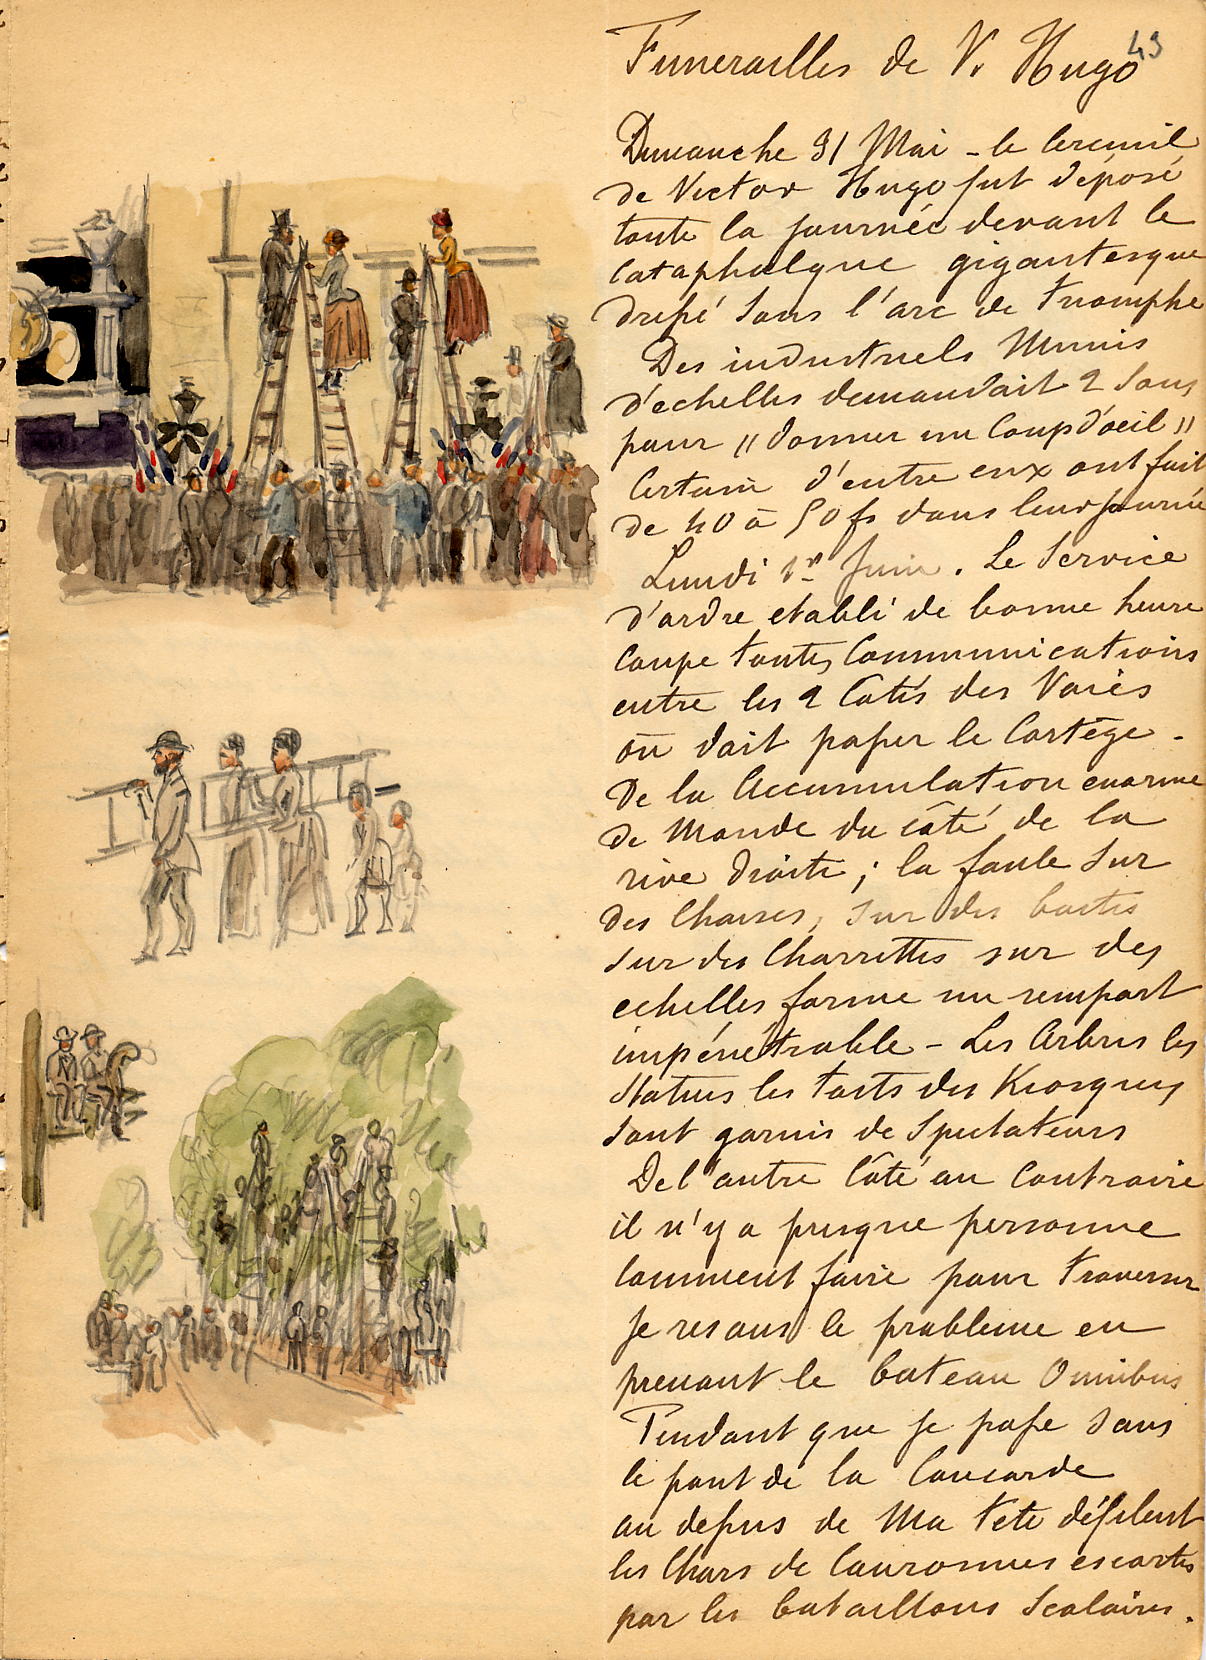 49
Funerailles de V. Hugo
Dimanche 31 Mai - le Cercueil
de Victor Hugo fut déposé
toute la journée devant le
Cataphalque gigantesque
dressé sous l'arc de triomphe
Des industriels Munis
d'echelles demandait 2 sous
pour "donner un Coup d'oeil"
Certain d'entre eux ont fait
de 40 à 50 fs dans leur journée
Lundi 1er Juin. Le Service
d'ordre etabli de bonne heure
Coupe toutes Communications
entre les 2 Cotés des Voies
où doit passer le Cortège -
De la Accumulation enorme
de Monde du côté de la
rive droite; la foule sur
des Chaises, sur des boites
sur des Charrettes sur des
echelles forme un rempart
impénétrable - Les Arbres les
Statues les toits des Kiosques
sont garnis de Spectateurs
De l'autre Côté au Contraire
il n'y a presque personne
Comment faire pour traverser
Je resous le probleme en
prenant le bateau Omnibus
Pendant que je passe sous
le pont de la Concorde
au dessus de Ma tete défilent
les Chars de Couronnes escortés
par les bataillons Scolaires.